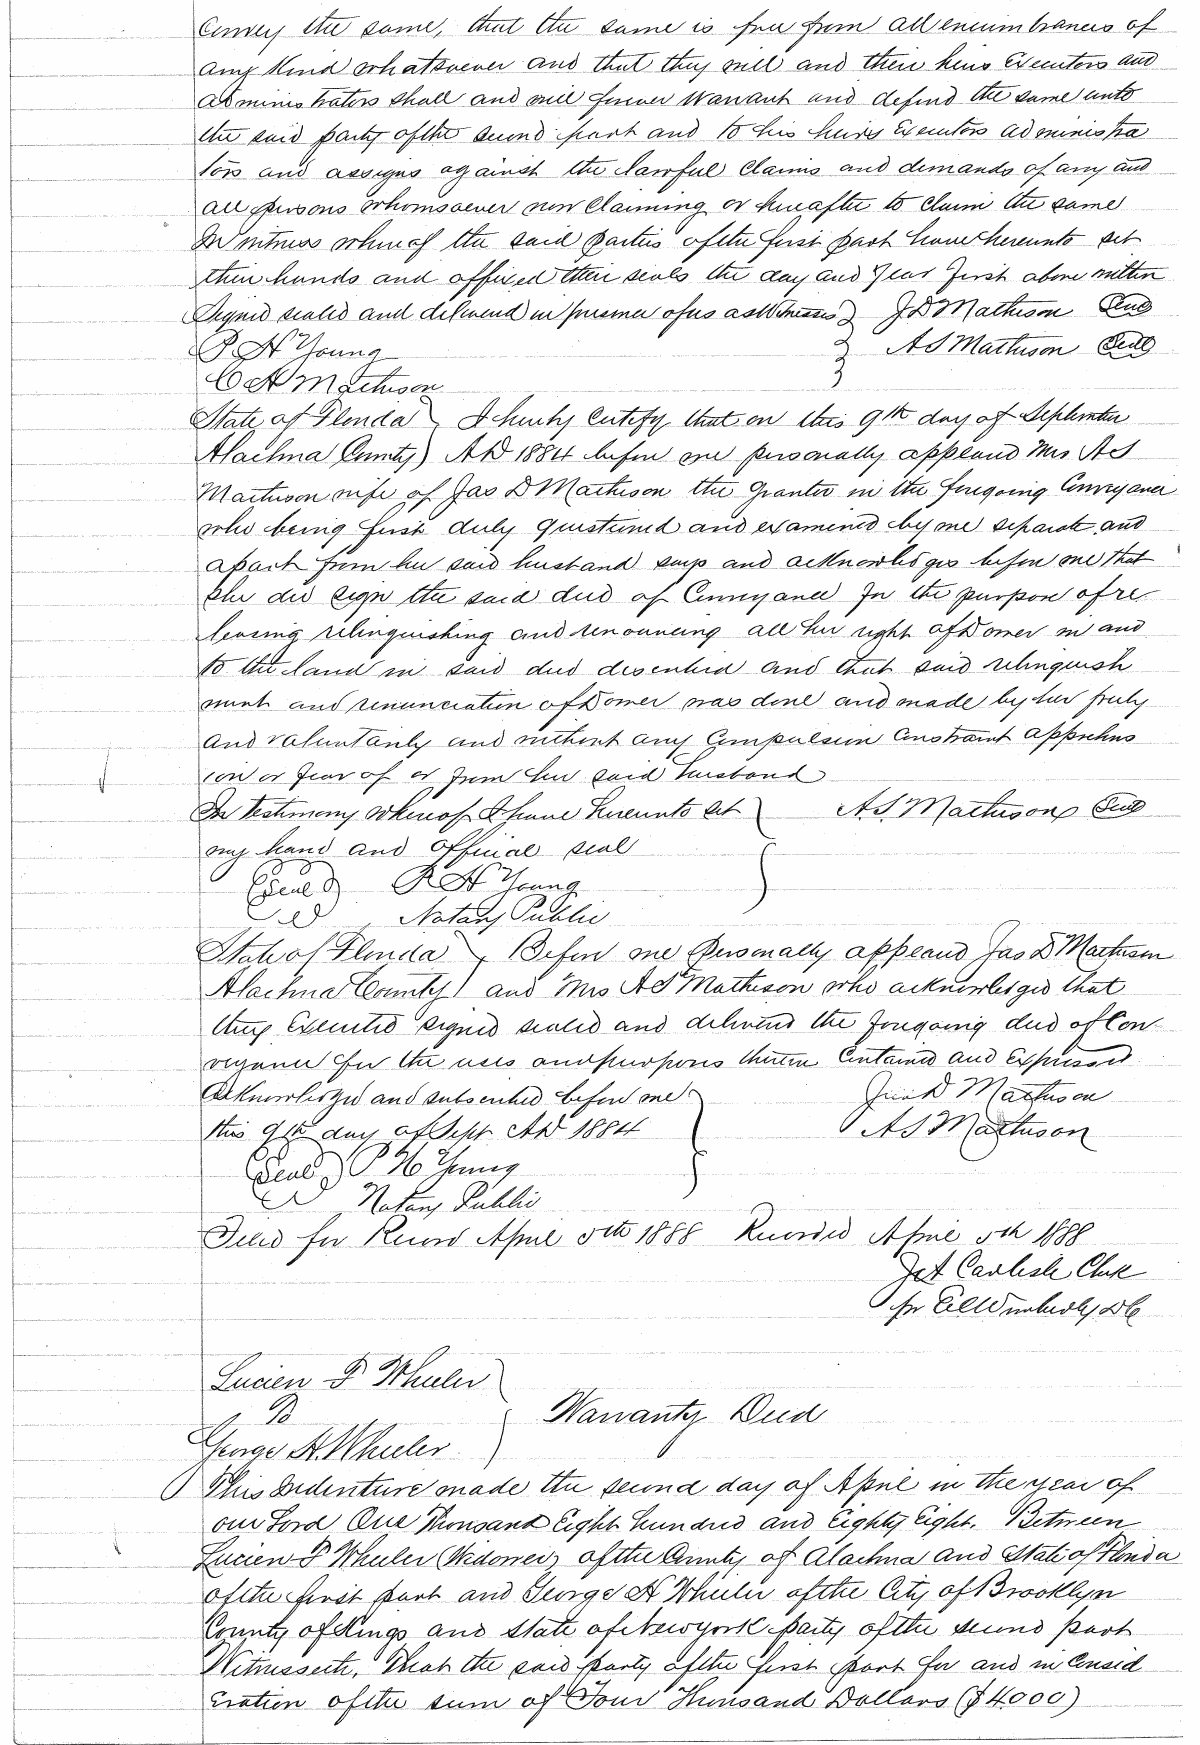 Convey the same, that the same is free from all encumbrances of
any kind whatsoever and that they will and their heirs Executors and
administrators shall and will forever Warrant and defend the same unto
the said party of the second part and to his heirs Executors administra
tors and assigns against the lawful Claims and demands of any and
all persons whomsoever now Claiming or hereafter to Claim the same
In witness whereof the said parties of the first part have hereunto set
their hands and affixed their seals the day and Year first above written
Signed sealed and delivered in presence of us as Witnesses JD Matheson Seal
P. H Young AS Matheson Seal
C A Matheson
State of Florida I hereby Certify that on this 9th day of September
Alachua County) AD 1884 before me personally appeared Mrs AS
Matheson wife of Jas D Matheson the Grantor in the foregoing Conveyance
who being first duly questioned and examined by me separate and
apart from her said husband says and acknowledges before me that
she did sign the said deed of Conveyance for the purpose of re
leasing relinquishing and renouncing all her right of Dower in and
to the land in said deed described and that said relinquish
ment and renunciation of Dower was done and made by her freely
and voluntarily and without any Compulsion Constraint apprehens
ion or fear of or from her said husband
In testimony whereof I have hereunto set A.S. Matheson Seal
my hand and official seal
(Seal) P H Young
Notary Public
State of Florida Before me Personally appeared Jas D Matheson
Alachua County) and Mrs AS Matheson who acknowledged that
they Executed signed sealed and delivered the foregoing deed of Con
veyance for the uses and purposes therein Contained and Expressed
Acknowledged and subscribed before me D Matheson
this 9th day of Sept AD 1884 AS Matheson
(Seal) P H Young
Notary Public
Filed for Record April 5th 1888 Recorded April 5th 1888
Carlisle Clerk
DC
Lucien F Wheeler
To Warranty Deed
George H. Wheeler
This Indenture made the second day of April in the year of
our Lord One Thousand Eight hundred and Eighty Eight. Between
Lucien F Wheeler (Widower) of the County of Alachua and State of Florida
of the first part and George H Wheeler of the City of Brooklyn
County of Kings and State of Newyork party of the second part
Witnesseth, That the said party of the first part for and in Consid
eration of the sum of Four Thousand Dollars ($4000)